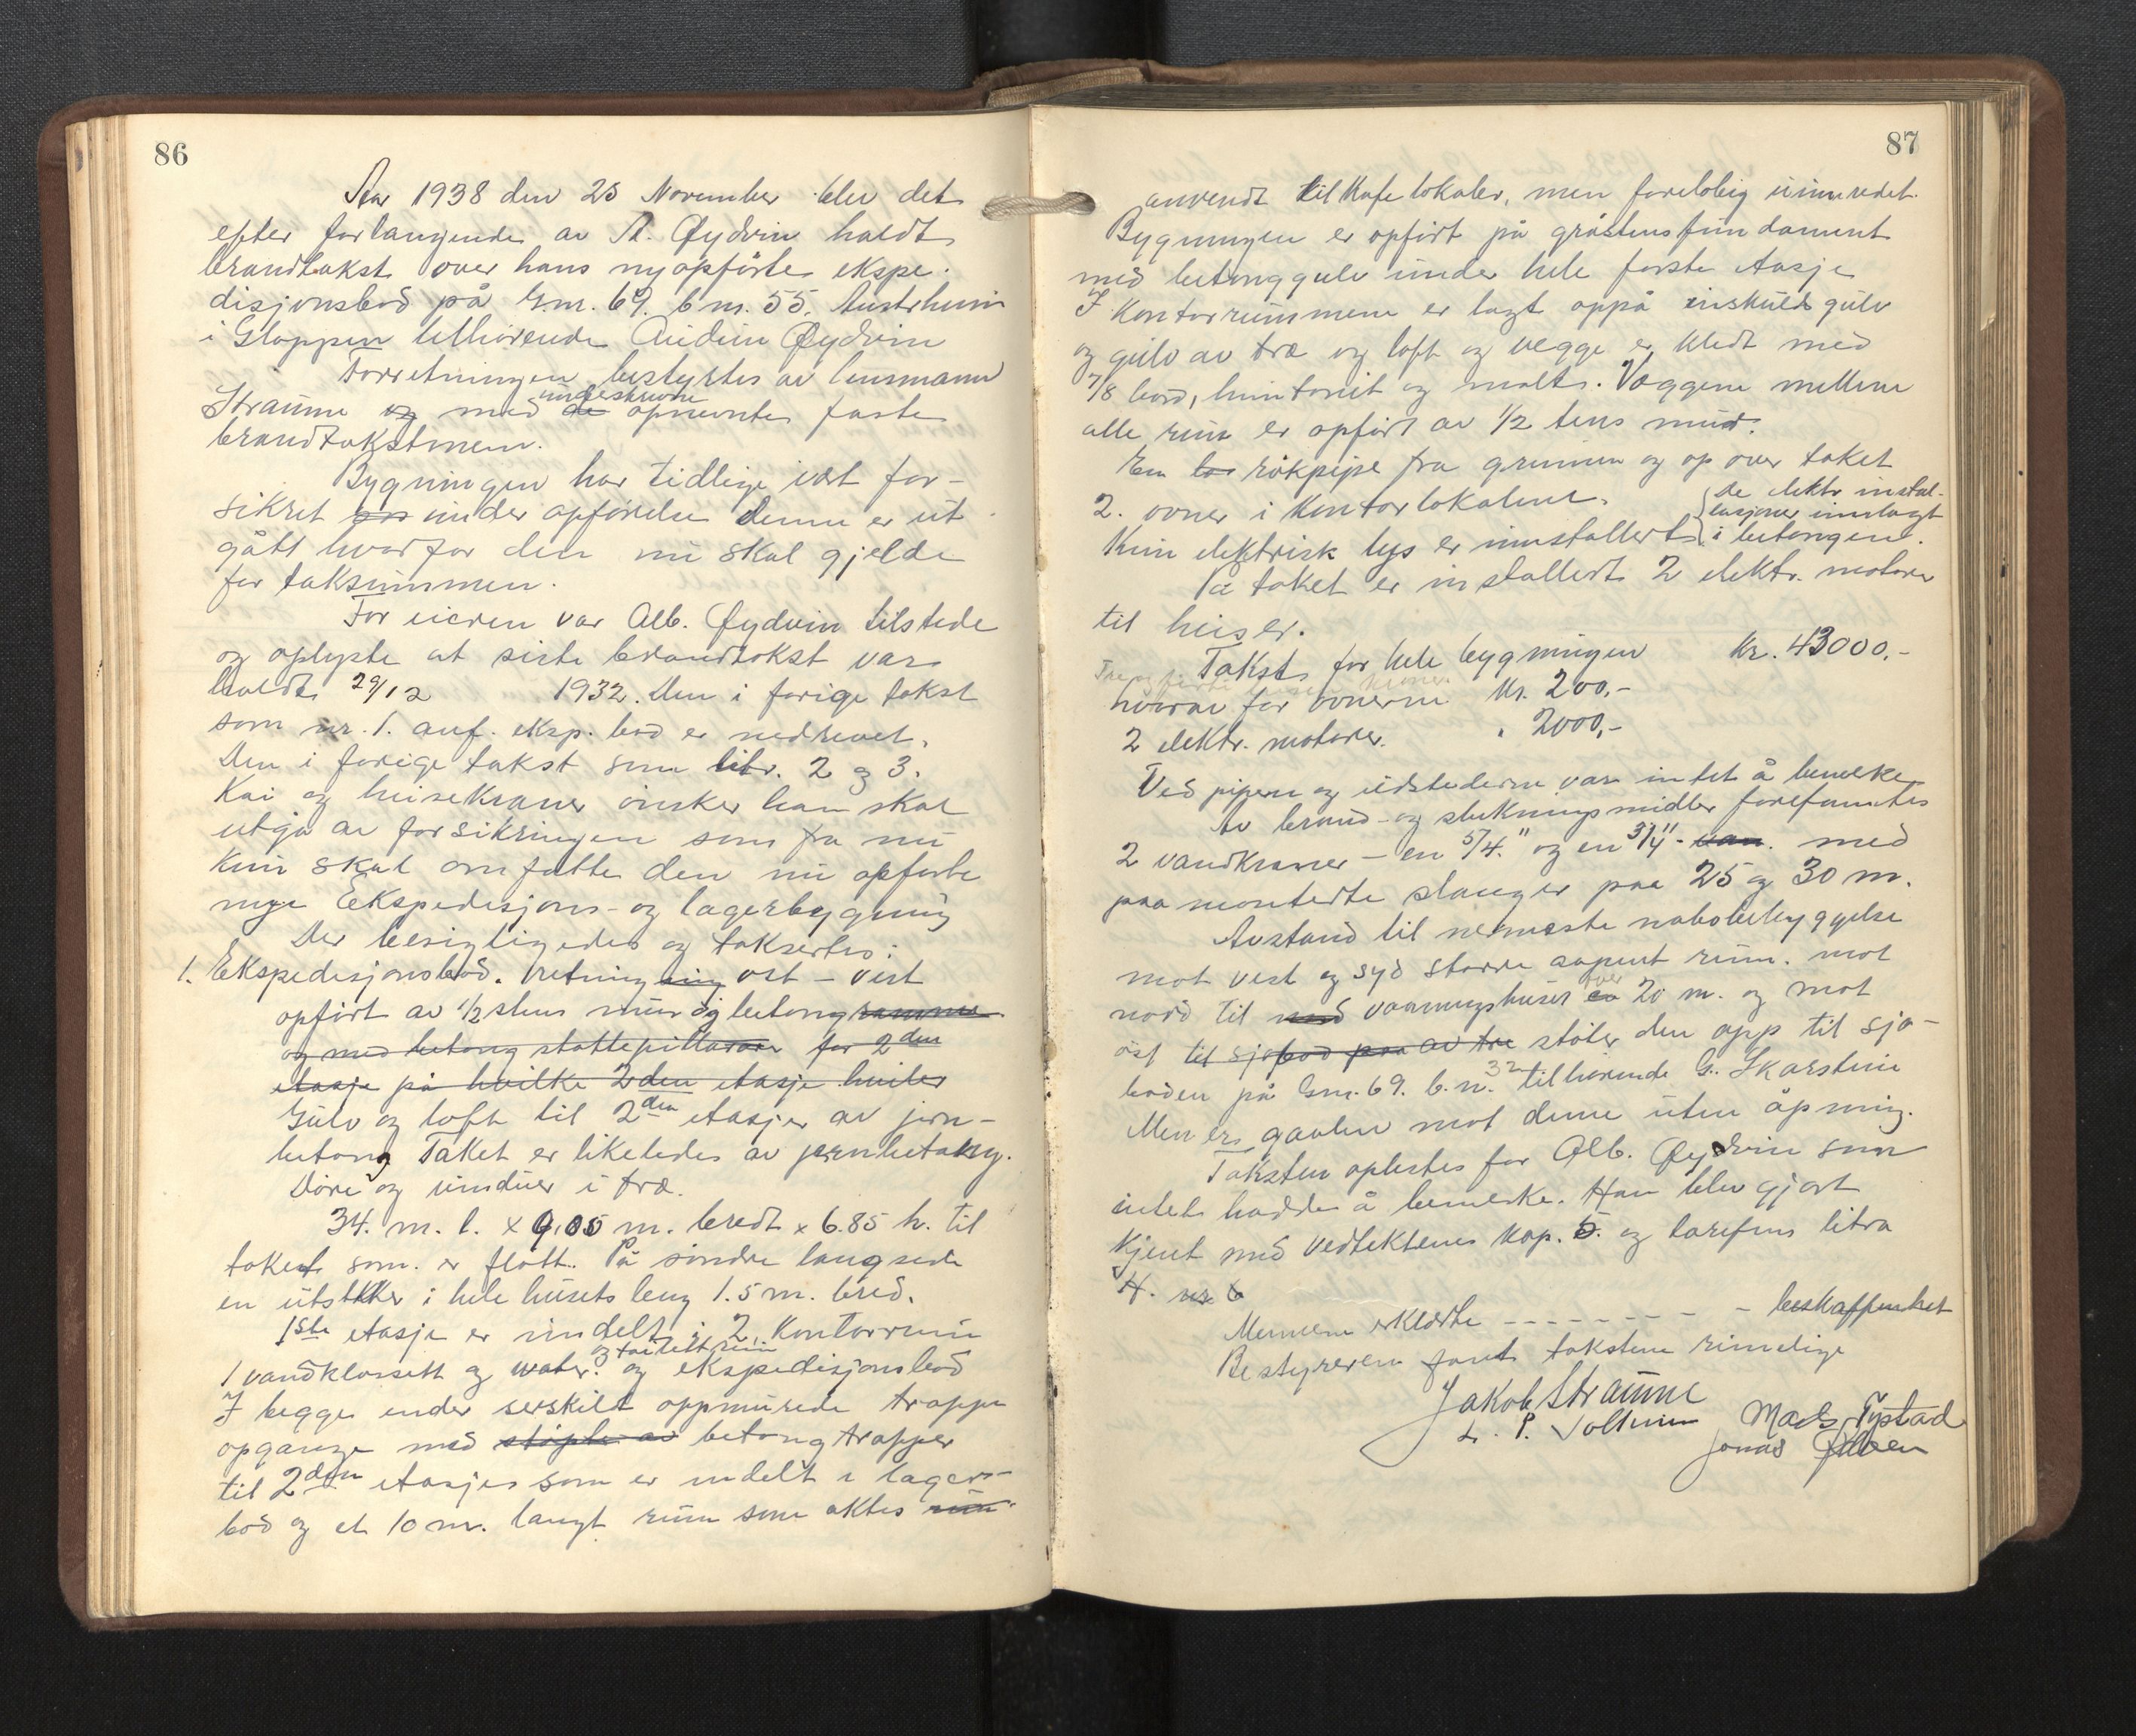 86
Aar 1938 den 25 November blev det
efter forlangende av A. Øydvin holdt
brandtakst over hans nyopförte ekspe-
disjonsbod på G.nr. 69. b nr. 55. Austrheim
i Gloppen tilhörende Audun Øydvin
Forretningen bestyrtes av lensmann
underskrevne
Straume og med de opnevnte faste
brandtakstmenn.
Bygningen har tidlige vært for-
sikret under opförelse denne er ut
gått hvorfor den nu skal gjelde
for taksummen.
For eieren var Alb. Øydvin tilstede
og oplyste at siste brandtakst var
holdt 29/12 1932. Den i forige takst
som nr. 1. anf. eksp. bod er nedrevet.
Den i forige takst som litr. 2 og 3.
Kai og heisekraner ønsker han skal
utgå av forsikringen som fra nu
kun skal omfatte den nu opførte
nye Ekspedisjons- og lagerbygning
Der besigtigedes og taksertes:
1. Ekspedisjonsbod. retning öst - vest
opfört av 1/2 stens mur og betong ramme
og med betong støttepillarer for 2den
etasje på hvilke 2den etasje hviler
Gulv og loft til 2den etasje av jern-
betong Taket er likeledes av jernbetong.
Döre og vinduer i træ.
34. m. l. x 9,05 m. bredt x 6.85 h. til
taket som er flatt. På söndre langside
en utstikker i hele husets leng 1.5 m. bred.
1ste etasje er inndelt i 2 Kontorrum
og toilettrum
1 vandklossett og water. og ekspedisjonsbod
I begge ender serskilt oppmurede trappe
opgange med støpte av betong trapper
til 2den etasjes som er indelt i lager-
bod og et 10 m. langt rum som aktes rum
87
anvendt til Kafe lokaler, men foreløbig uinnredet.
Bygningen er opfört på gråstens fundament
med betonggulv under hele første etasje
I Kontorrummene er lagt oppå innskudsgulv
og gulv av træ og loft og vegge er kledt med
7/8 bord, huntonit og malte. Væggene mellem
alle rum er opfört av 1/2 stens mur.
En rökpipe fra grunnen og op over taket
2. ovner i Kontorlokalene.
De elektr. instal-
lasjoner innlagt
Kun elektrisk lys er innstallert i betongen.
På taket er installert 2 elektr. motorer
til heiser.
Takst for hele bygningen kr. 43000.-
Tre og førti tusen kroner.
hvorav for ovnerne kr. 200,-
2 elektr. motorer. " 2000,-
Ved piper og ildstederne var intet å bemerke
Av brand- og slukningsmidler forefanntes
2 vandkraner - en 5/4" og en 3/4" - van. med
paa monterte slanger paa 25 og 30 m.
Avstand til nermeste nabobebyggelse
mot vest og syd større aapent rum. mot
over
nord til med vaaningshuset ca 20 m. og mot
öst til sjøbod paa av tre støter den opp til sjø-
boden på Gnr. 69. b. n. 32 tilhörende G. Skarstein
Men er gavlen mot denne uten åpning.
Taksten oplestes for Alb. Øydvin som
intet hadde å bemerke. Han blev gjort
kjent med vedtektenes kap. 5. og tarifens litra
H. nr 6
Mennene erklærte - - - - - - - beskaffenhet
Bestyreren fant takstene rimelige
Jakob Straume
L. P. Solheim Mads Tystad
Jonas